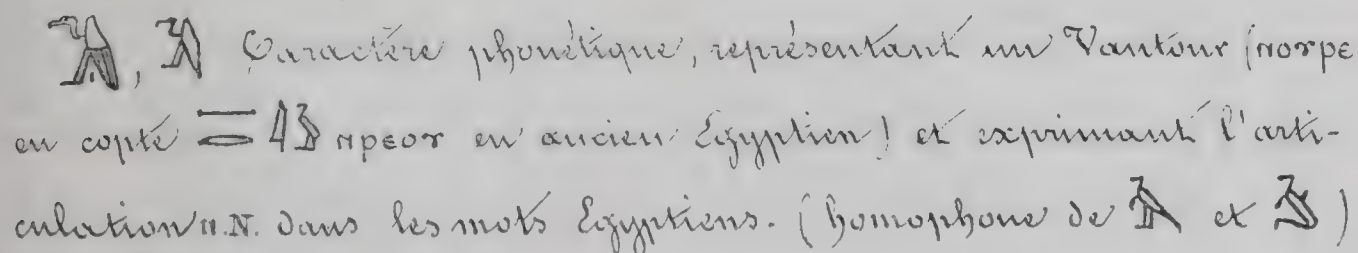 𓅐, 𓅐 Caractère phonétique, représentant un Vautour (ⲛⲟⲩⲣⲉ
en copte ⲛⲣⲉⲟⲩ en ancien Egyptien) et exprimant l'arti-
culation ⲛ. N. dans les mots Egyptiens. (homophone de et )